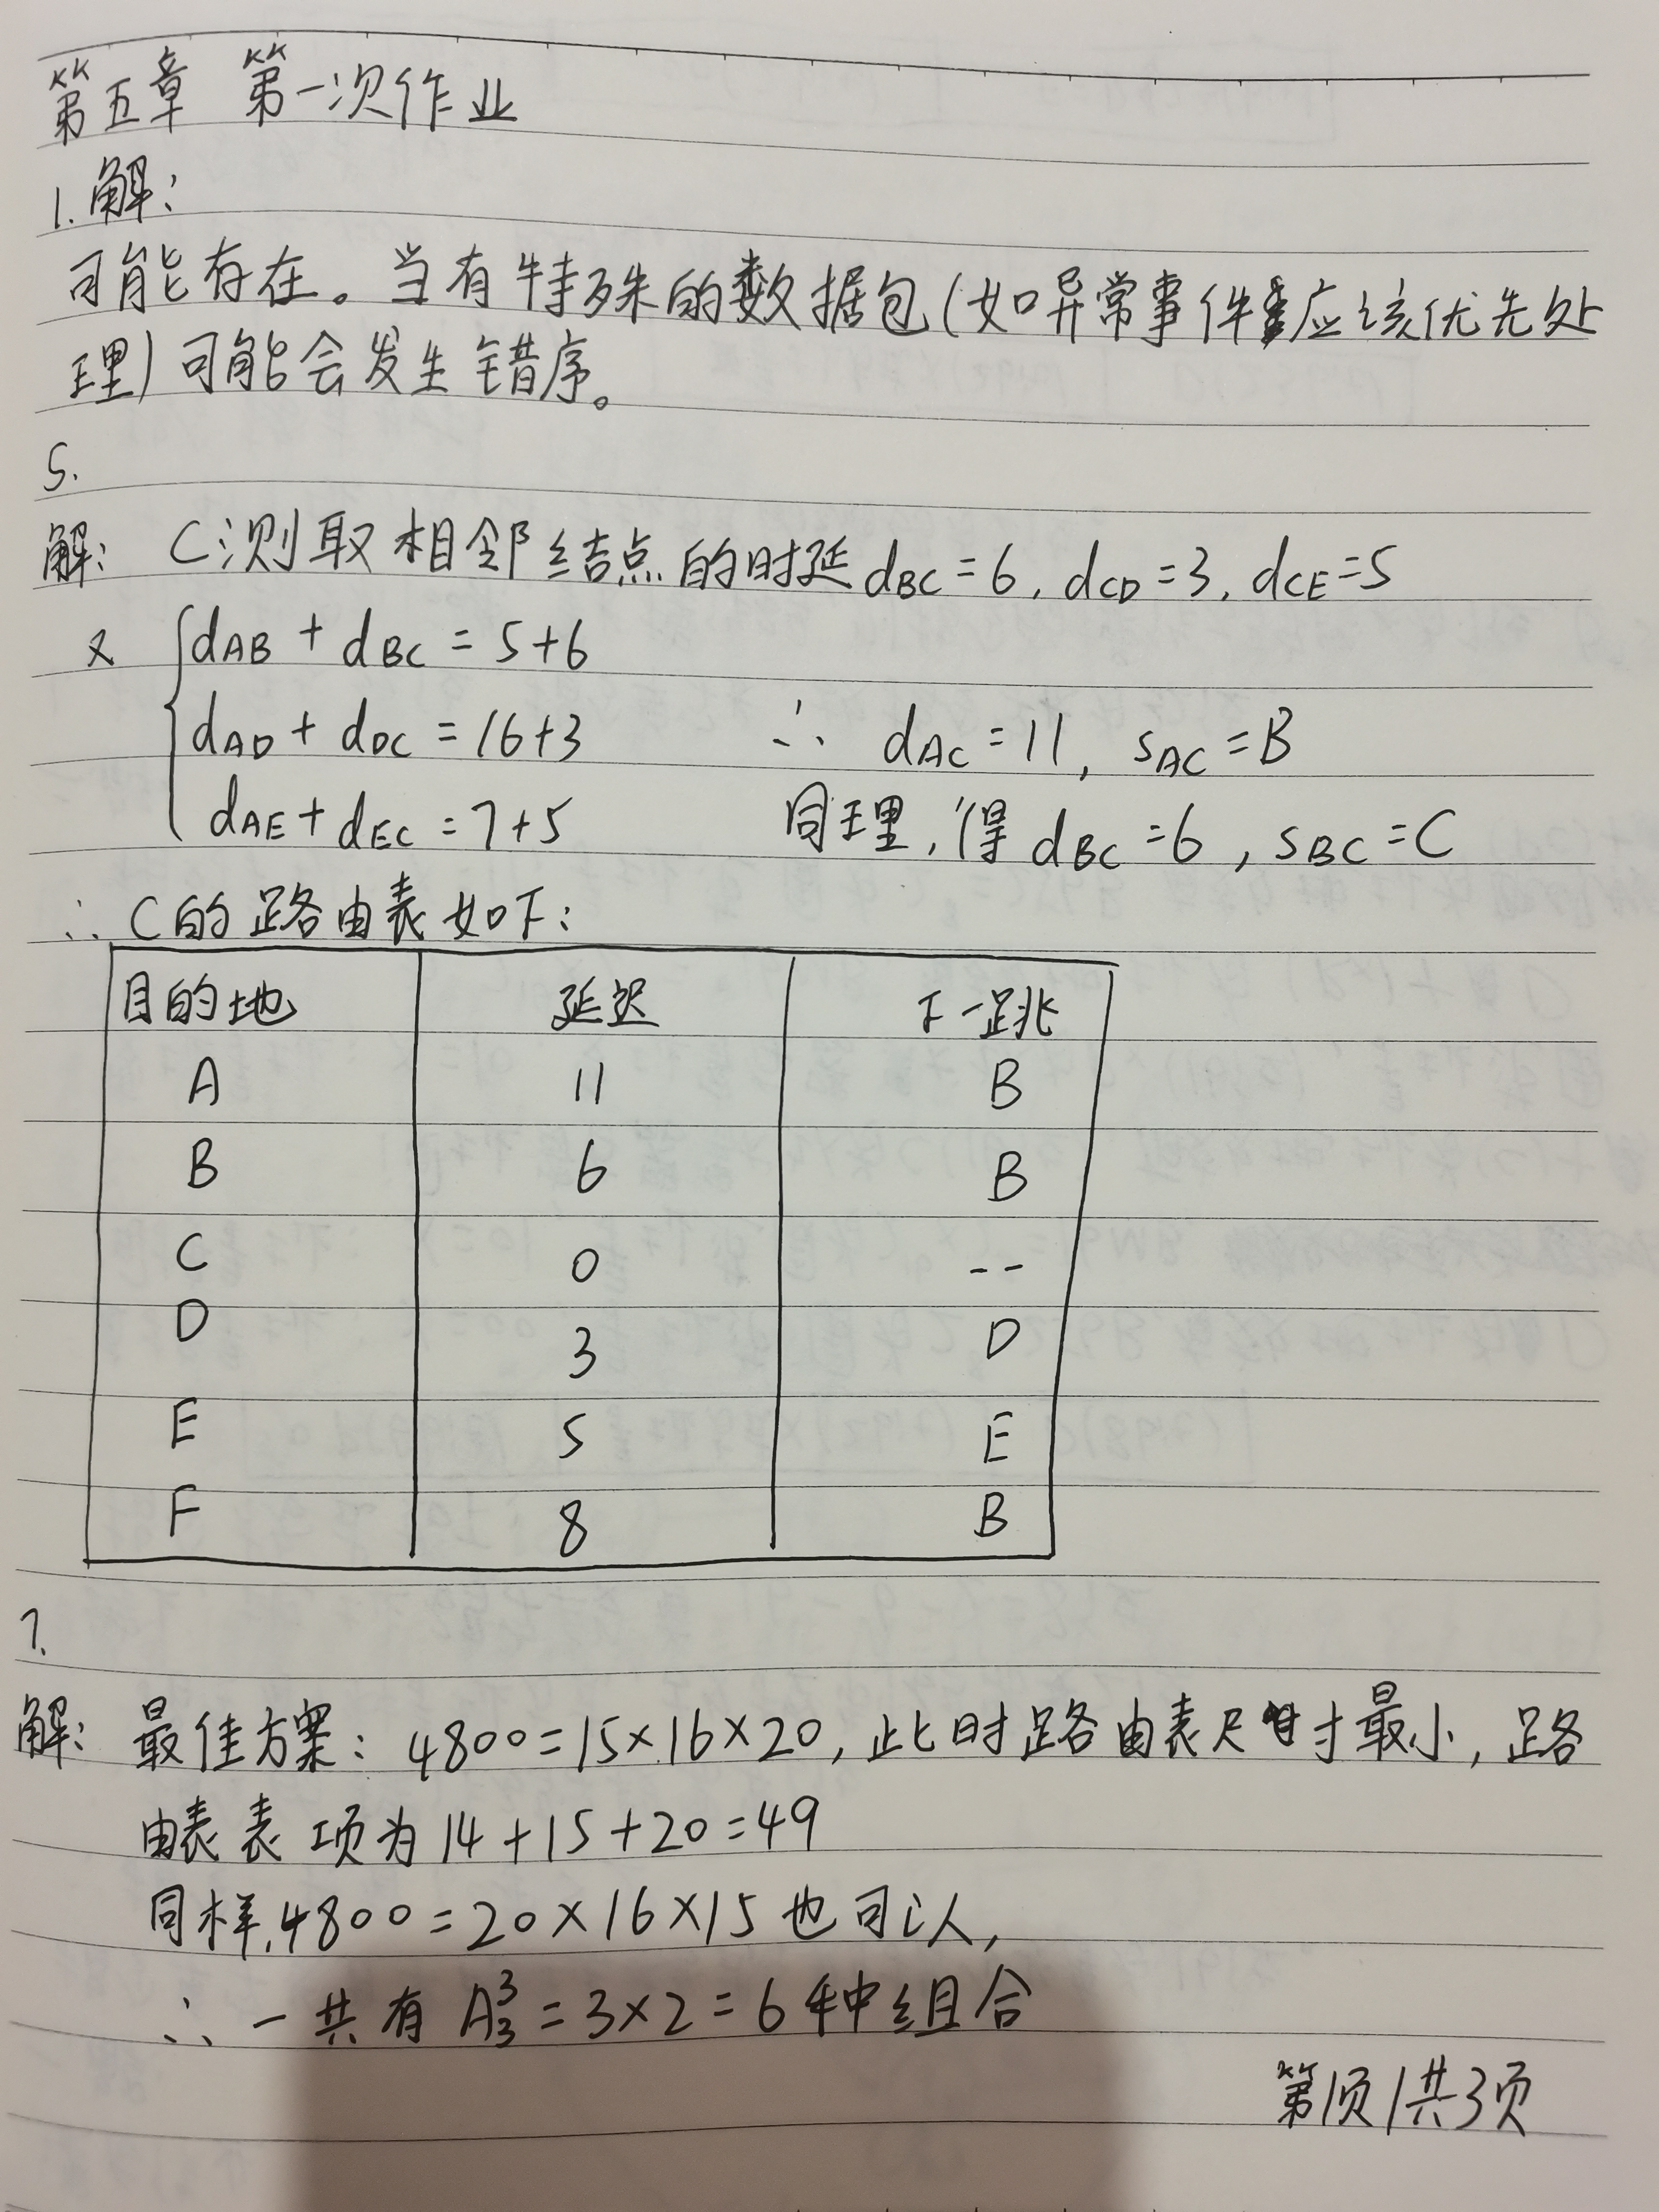 第五章 第一次作业
1.解:
可能存在。当有特殊的数据包(如异常事件应该优先处
理)可能会发生错序。
5.
解: C测取相邻结点的时延dBC=6, dCD=3, dCE=5
又 dAB + dBC = 5+6
dAD + dDC = 16+3 ∴ dAC=11, SAC=B
dAE + dEC = 7+5 同理,得 dBC=6, SBC=C
∴ C的路由表如下:
目的地 延迟 下一跳
A 11 B
B 6 B
C 0 --
D 3 D
E 5 E
F 8 B
7.
解: 最佳方案: 4800=15×16×20, 此时路由表尺寸最小, 路
由表表项为14+15+20=49
同样,4800=20×16×15也可以,
∴ 一共有 A₃³=3×2=6种组合
第1页/共3页